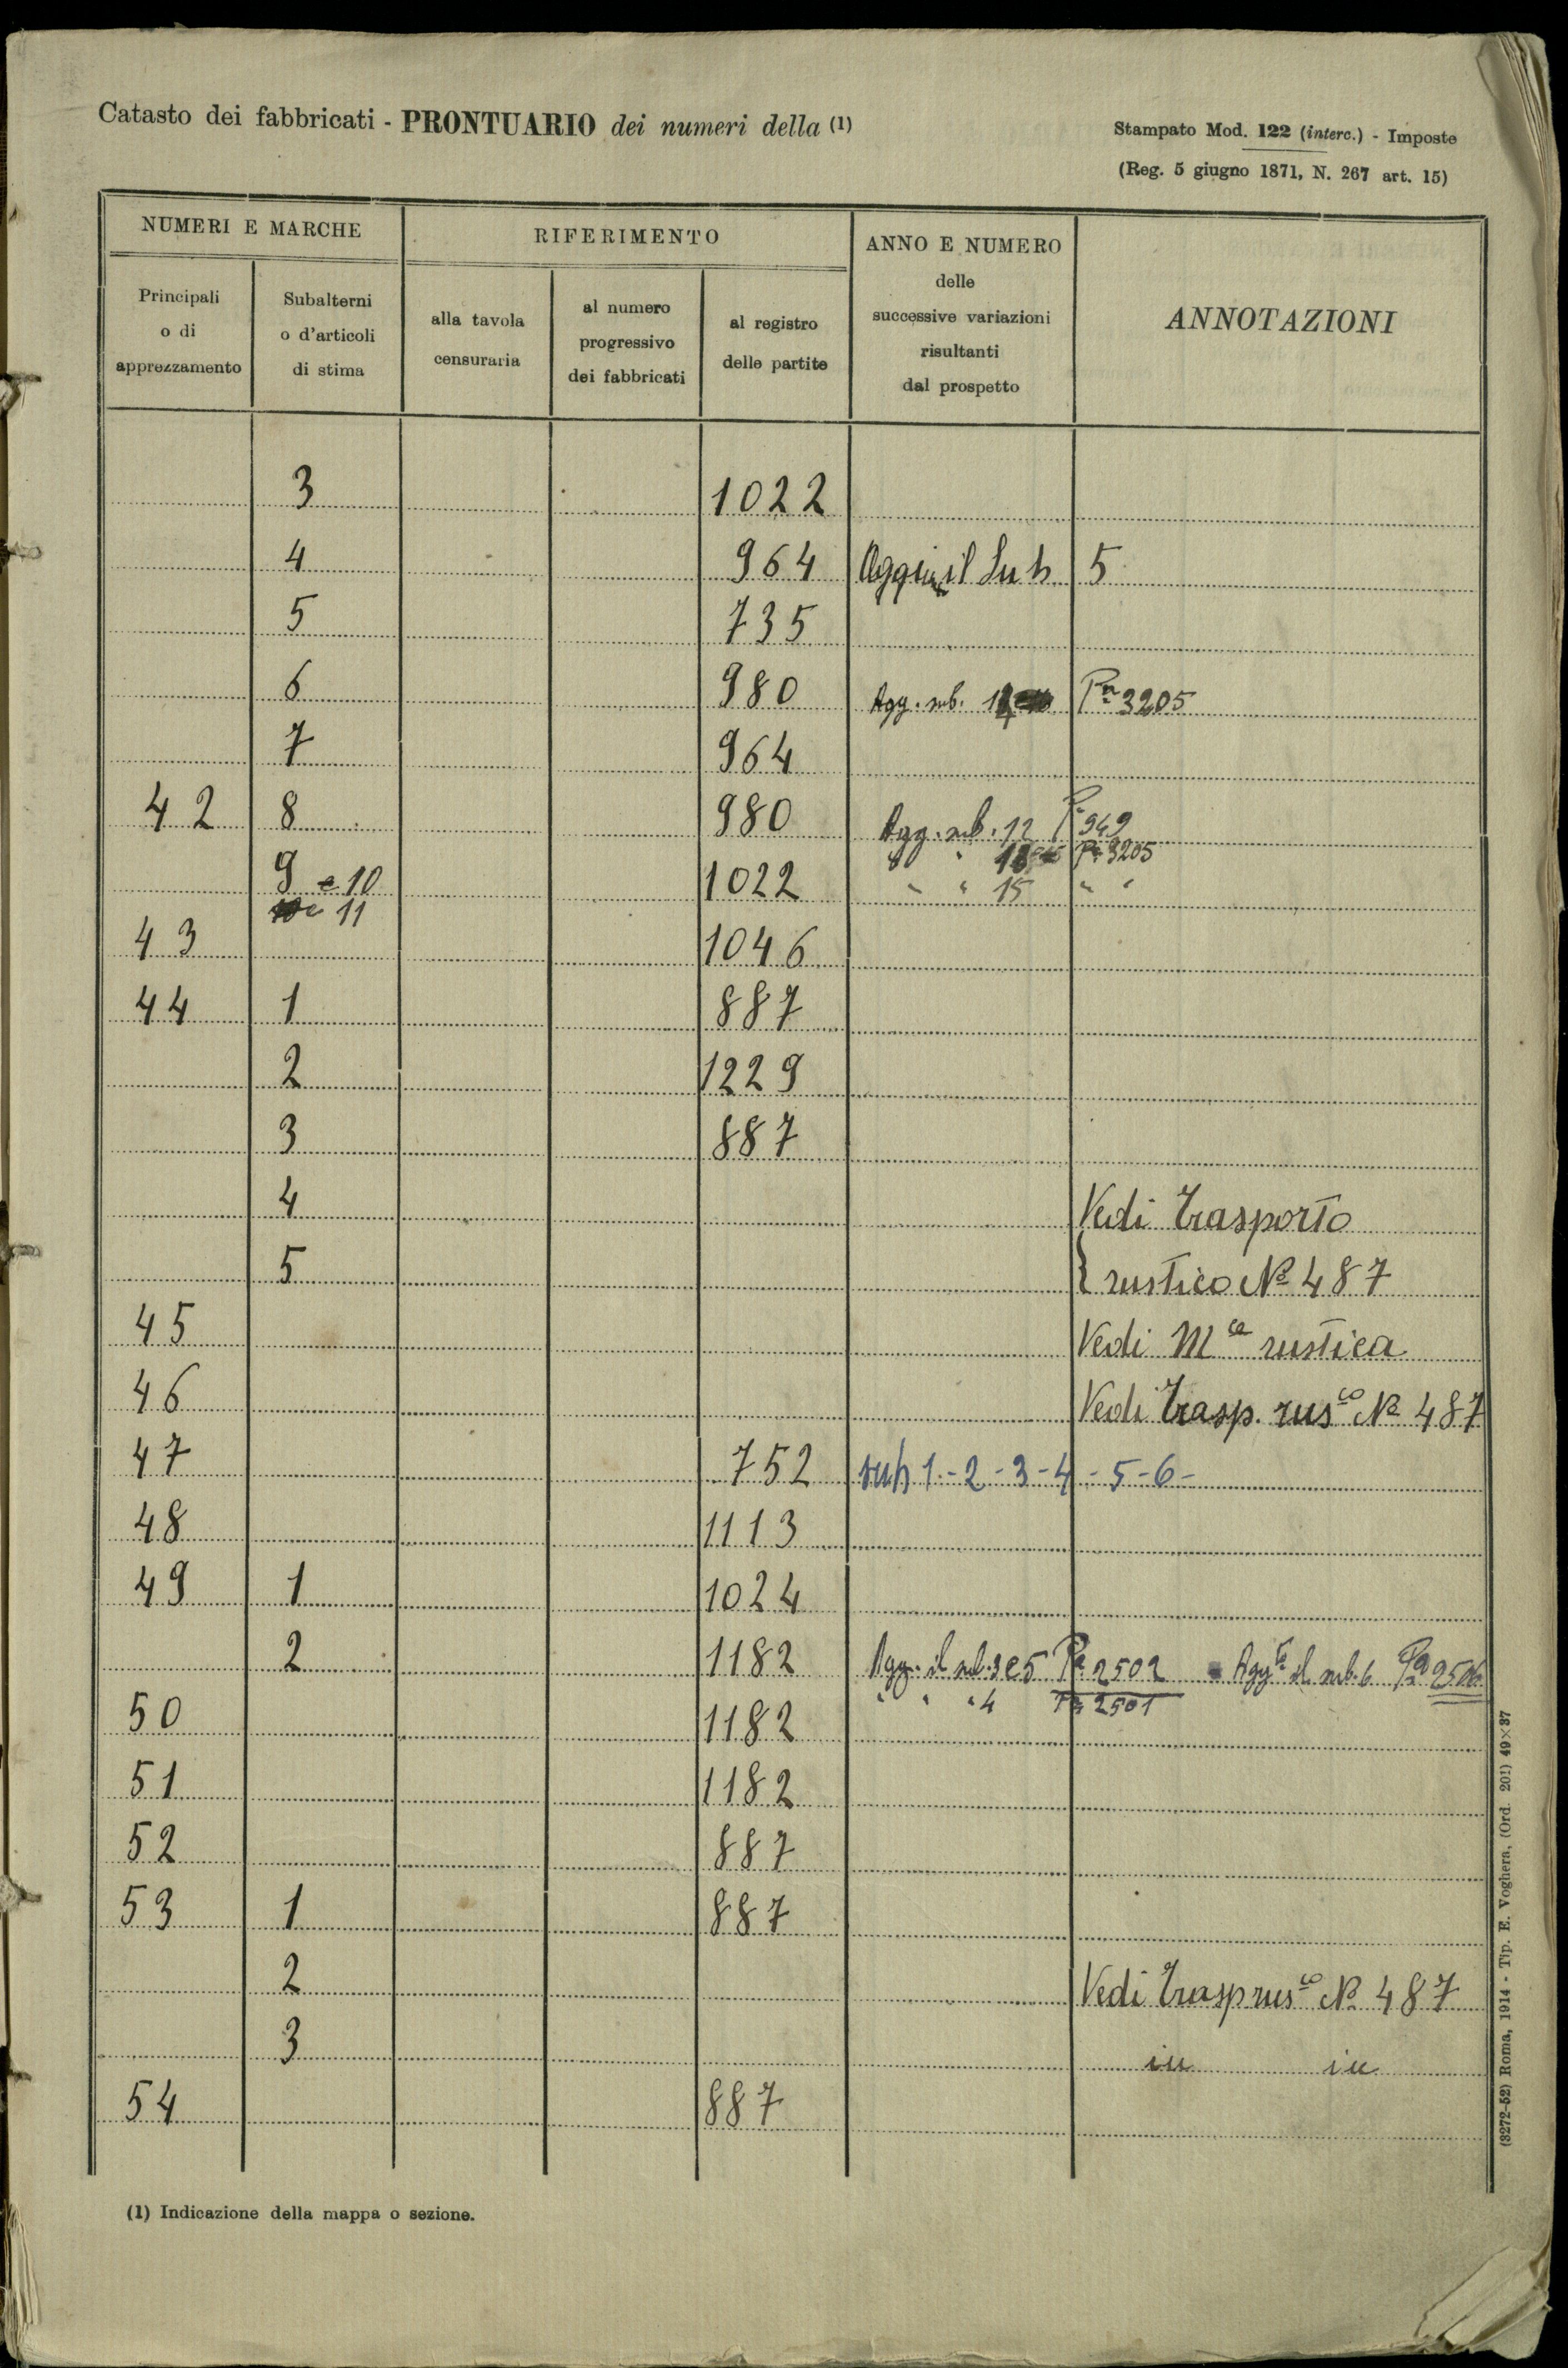 Catasto dei fabbricati - PRONTUARIO dei numeri della (1)
Stampato Mod. 122 (interc.) - Imposte
(Reg. 5 giugno 1871, N. 267 art. 15)
NUMERI E MARCHE
RIFERIMENTO
ANNO E NUMERO
delle
successive variazioni
risultanti
dal prospetto
ANNOTAZIONI
Principali
o di
apprezzamento
Subalterni
o d'articoli
di stima
alla tavola
censuraria
al numero
progressivo
dei fabbricati
al registro
delle partite
3 1022
4 964 il Sub 5
5 735
6 980 Agg. sub. Pa 3205
7 964
42 8 980 Agg. sub. 12 949
Pa 3205
9 e 10 1022 " " 15 " "
e 11
43 1046
44 1 887
2 1229
3 887
4 Vedi trasporto
5 } rustico No 487
45 Vedi Mca rustica
46 Vedi trasp. rusco No 487
47 752 sub 1 - 2 - 3 - 4 - 5 - 6 -
48 1113
49 1 1024
2 1182 Agg. il sub. 3 e 5 Pa 2502 Aggto il sub. 6 Pa 2506
" " " 4 Pa 2501
50 1182
51 1182
52 887
53 1 887
2 Vedi trasp rusco No 487
3
54 887
(1) Indicazione della mappa o sezione.
(3272-52) Roma, 1914 - Tip. E. Voghera, (Ord. 201) 49×37